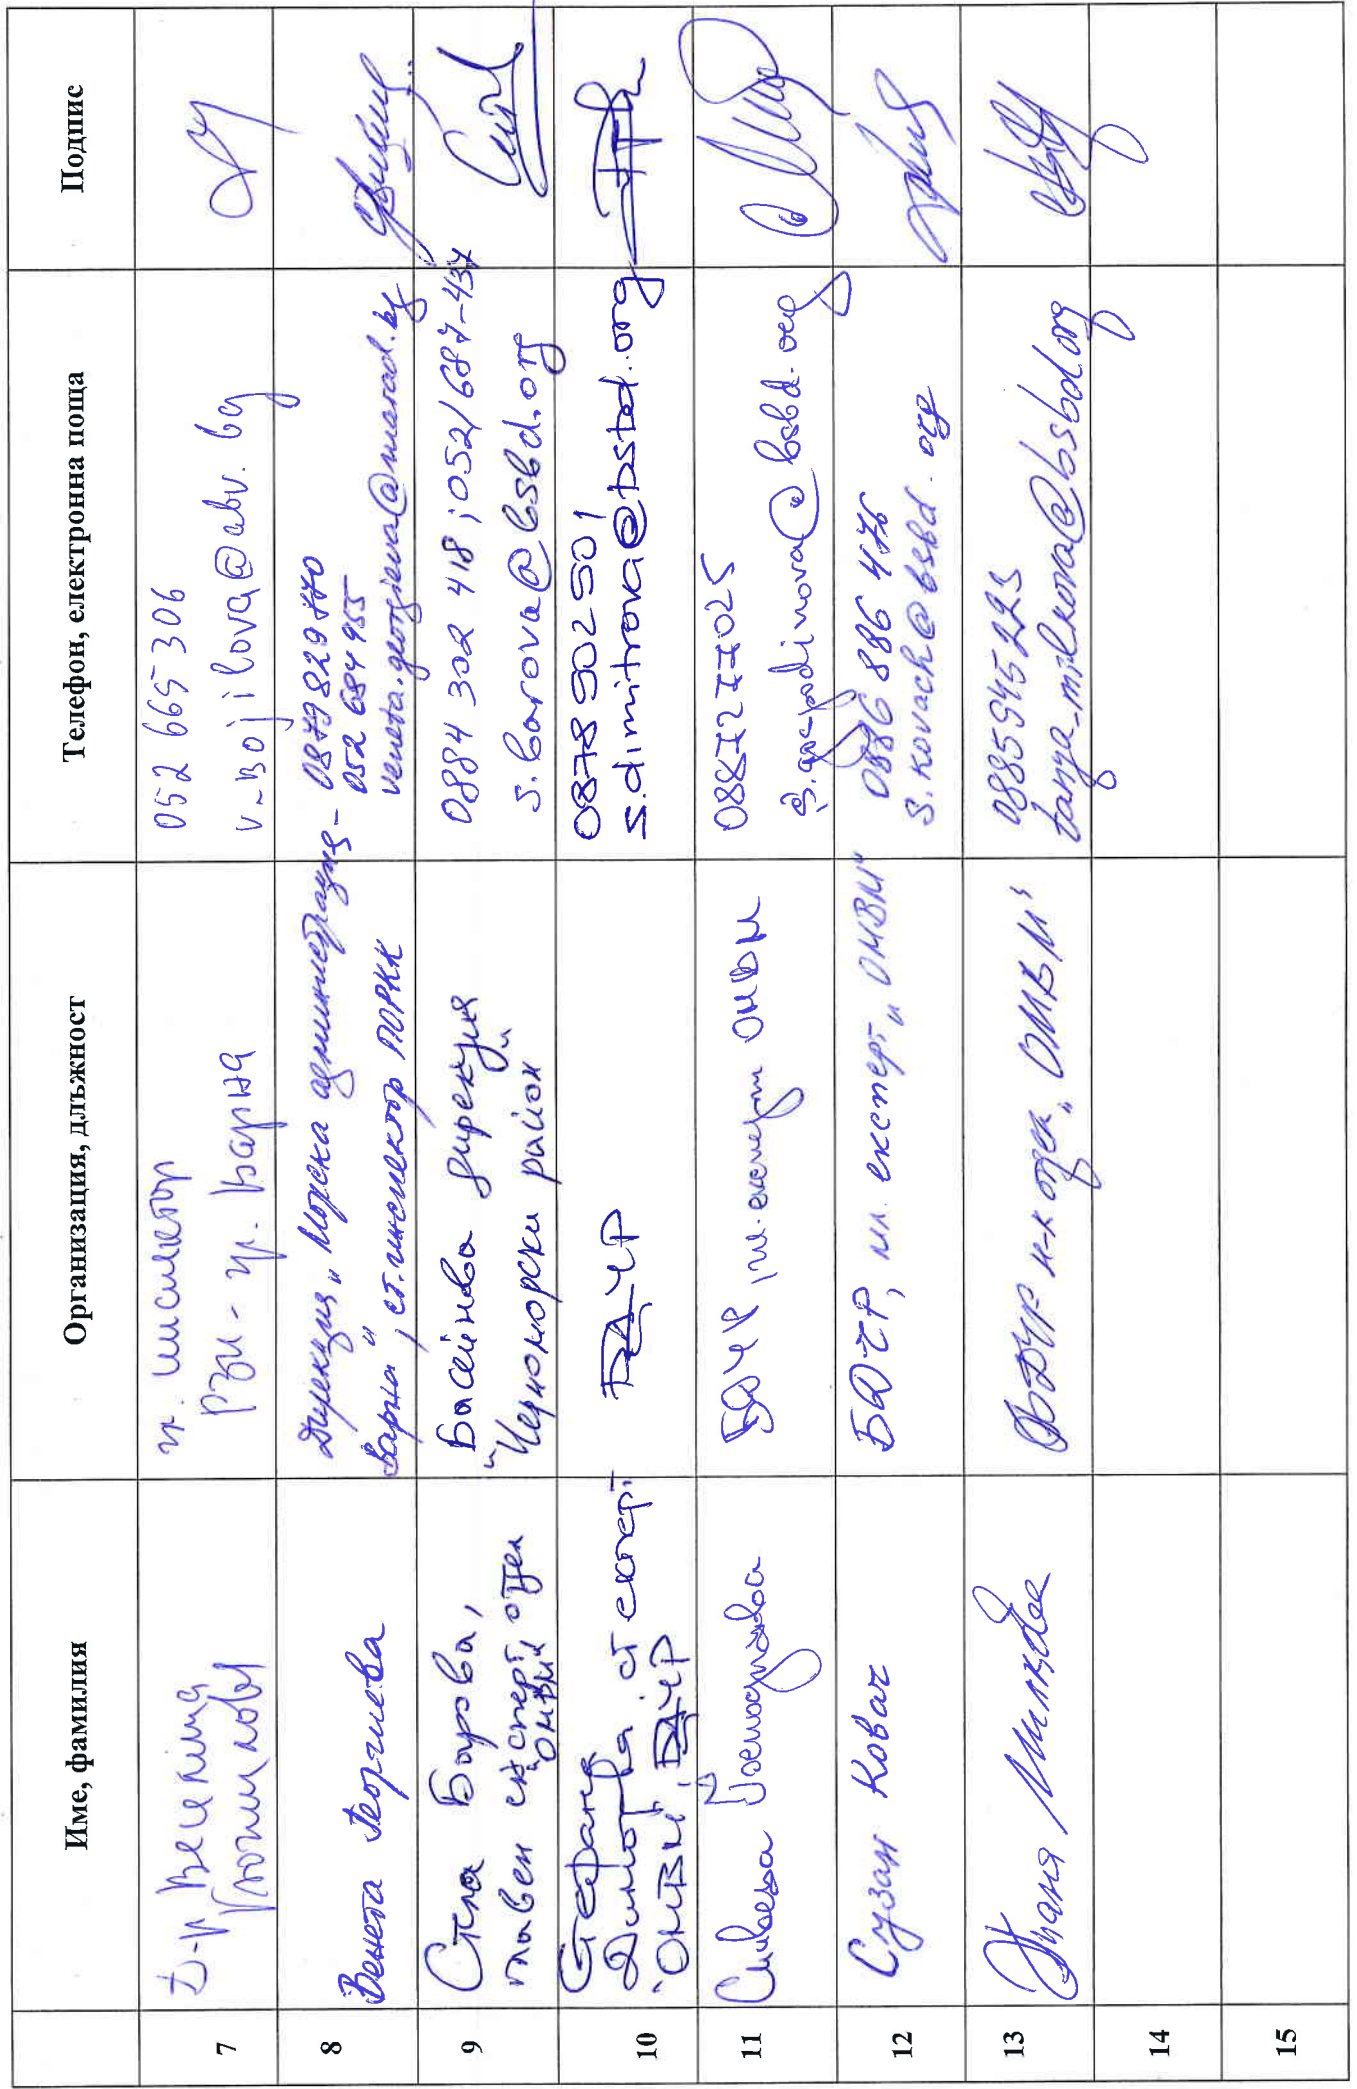 Име, фамилия
Организация, длъжност
Телефон, електронна поща
Подпис
7
Д-р Веселина
Божилова
гл. инспектор
РЗИ - гр. Варна
052 665 306
v_bojilova@abv.bg
8
Венета Георгиева
Дирекция „Морска администрация -
Варна", ст. инспектор ПОРКК
0879 829 770
052 684 955
veneta.georgieva@marad.bg
9
Стела Барова,
главен експерт, отдел
"ОМВМ"
Басейнова дирекция
"Черноморски район"
0884 302 418 ; 052/687-437
s.barova@bsbd.org
10
Стефана
Димитрова, ст експерт
"ОМВМ", БДЧР
БДЧР
0878502501
s.dimitrova@bsbd.org
11
Силвева Господинова
БДЧР, гл. експерт ОМВМ
0887277025
s.gospodinova@bsbd.org
12
Сузан Ковач
БДЧР, мл. експерт „ОМВМ"
0886 886 476
s.kovach@bsbd.org
13
Таня Милкова
БДЧР н-к отдел „ОМВМ"
0885945223
tanya_milkova@bsbd.org
14
15